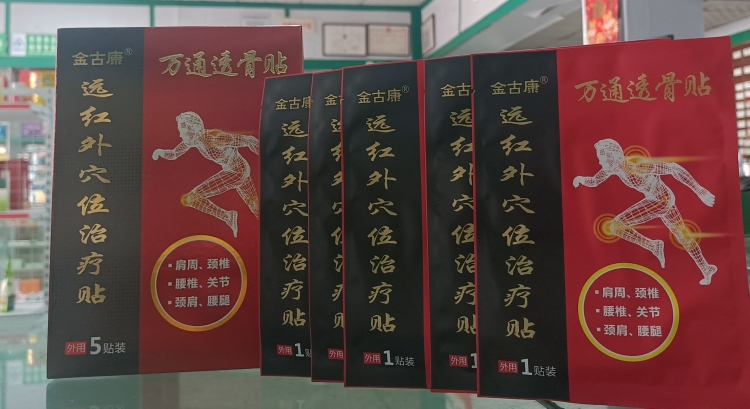 金古康®
万通透骨贴
远红外穴位治疗贴
▪ 肩周、颈椎
▪ 腰椎、关节
▪ 颈肩、腰腿
外用 5贴装
金古康
远红外穴位治疗贴
外用 1
金古
远红外穴位治疗贴
外用
金古康®
远红外穴位治疗贴
外用 1贴装
金古
远红外穴位治疗贴
外用 1
金古康®
万通透骨贴
远红外穴位治疗贴
▪ 肩周、颈椎
▪ 腰椎、关节
▪ 颈肩、腰腿
外用 1贴装